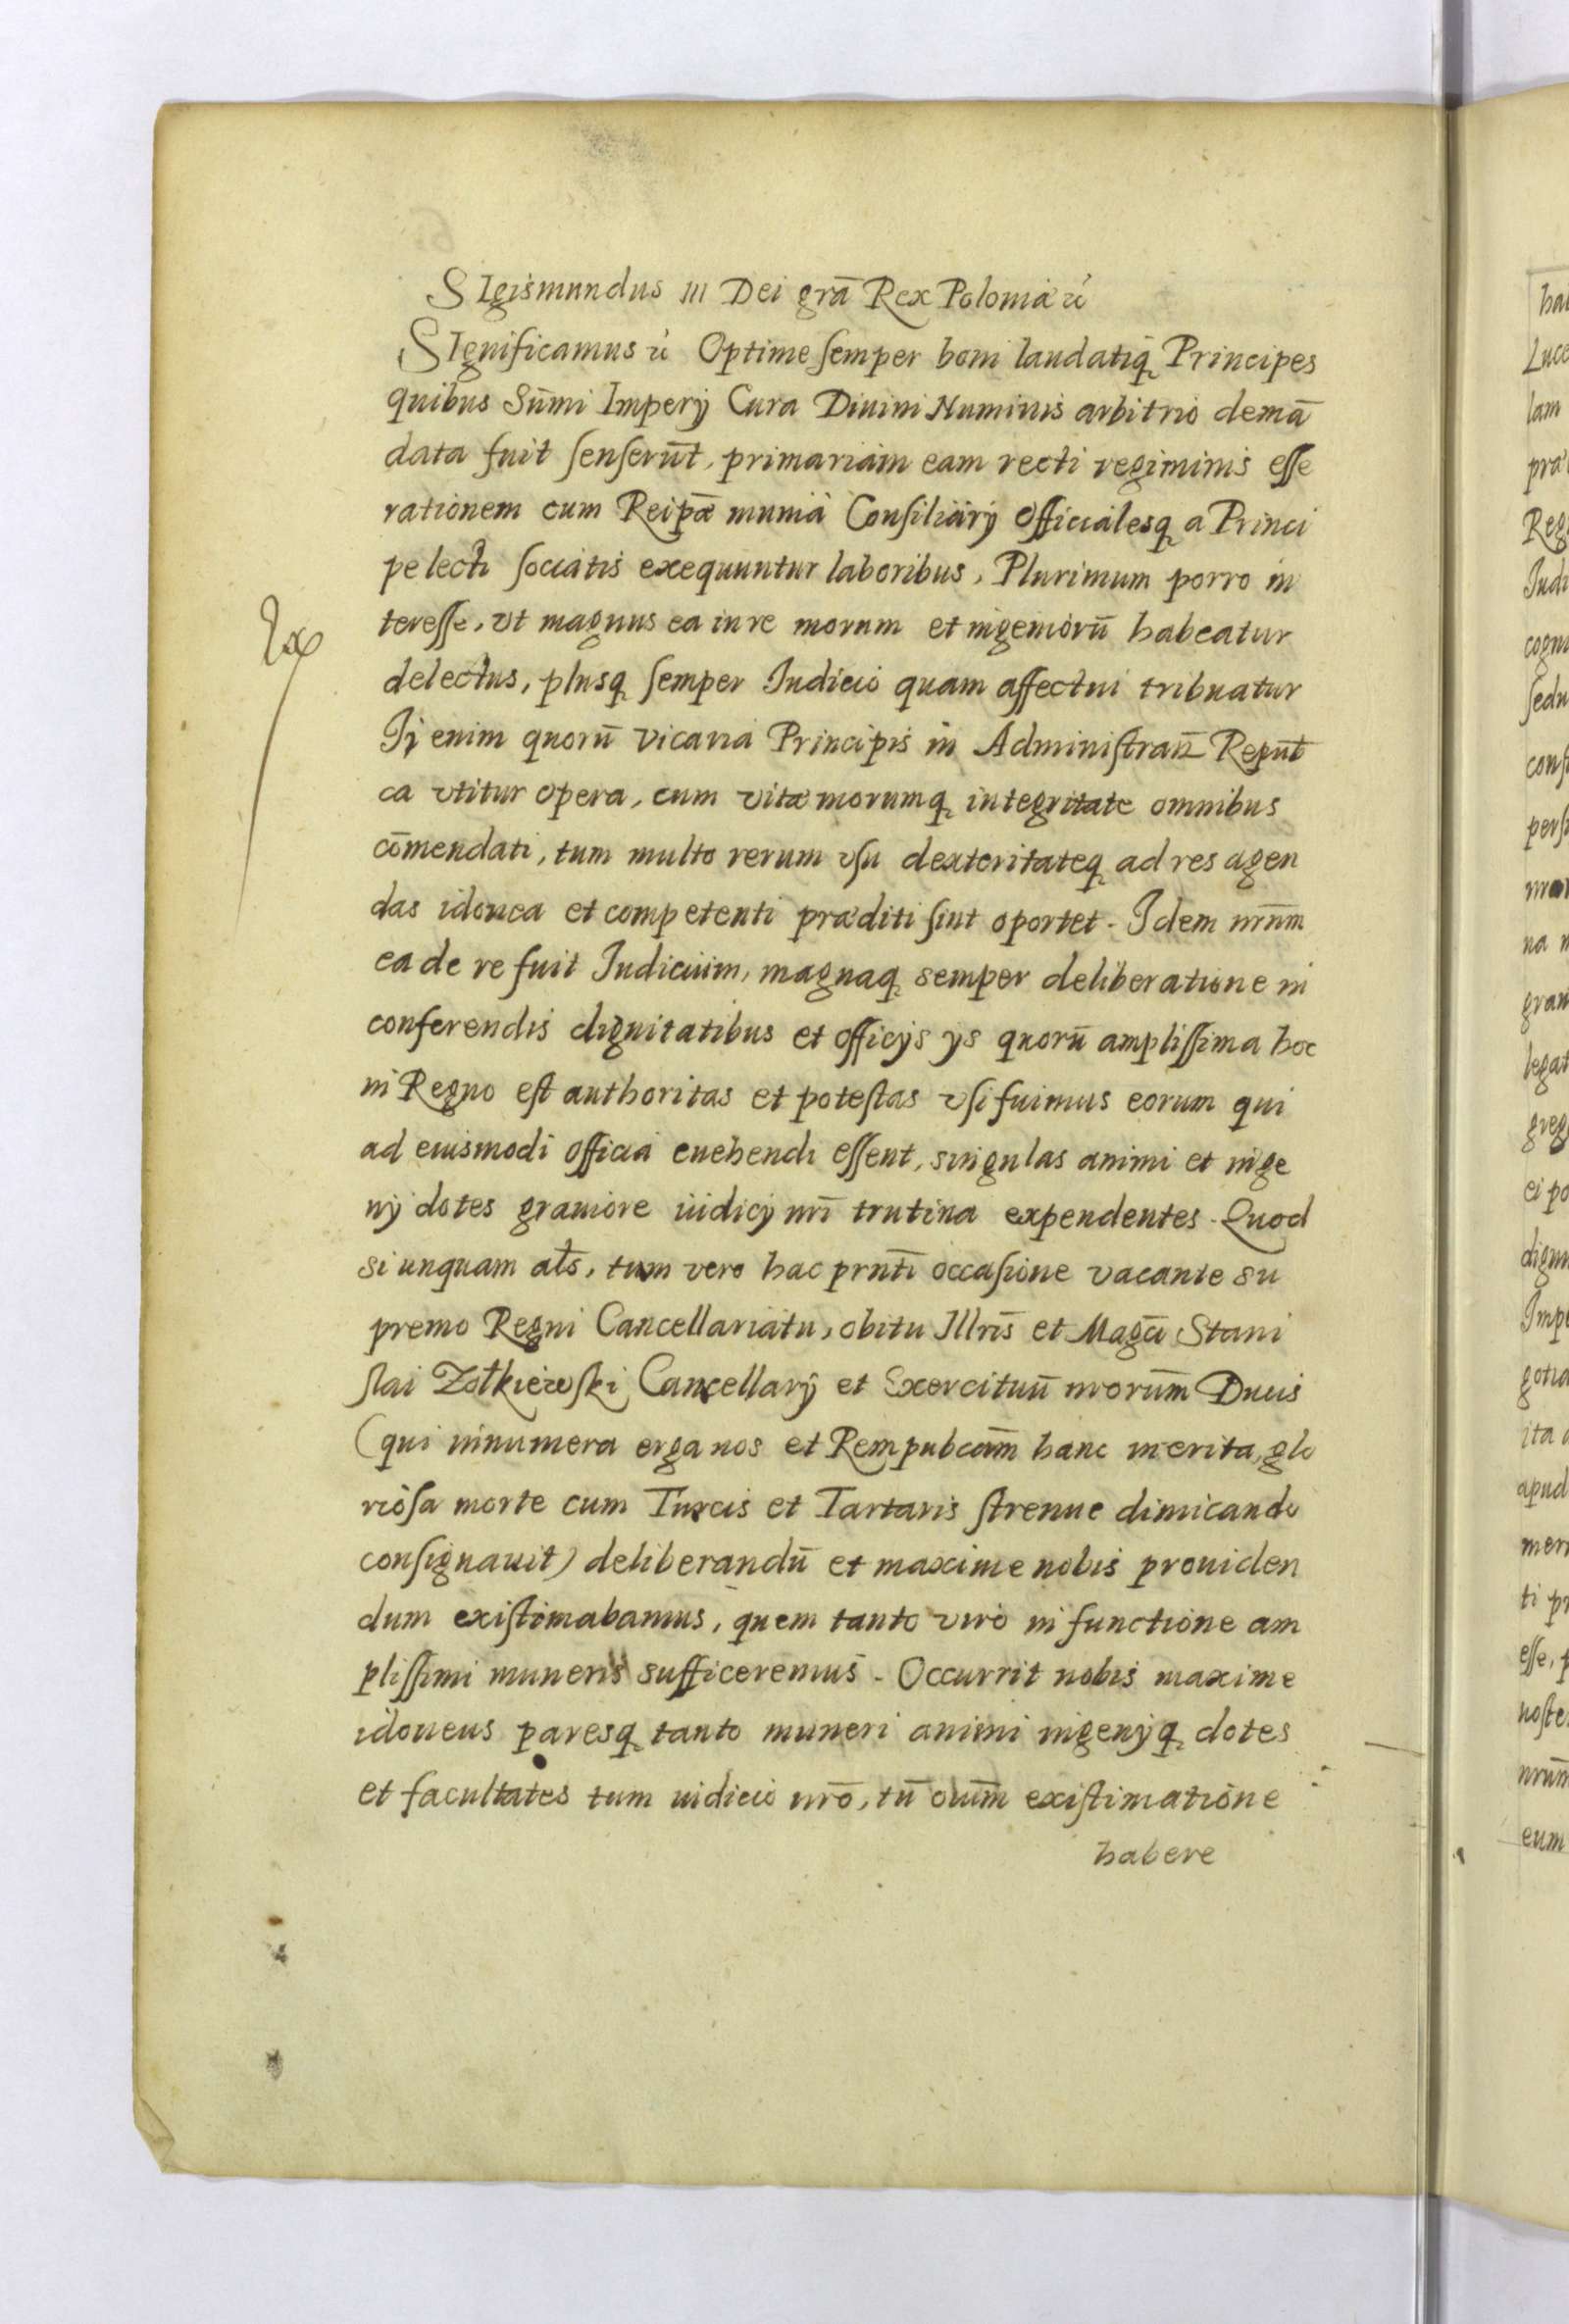 SIgismundus III Dei grā Rex Poloniæ &c
SIgnificamus &c Optime semper boni laudatiq̢ Principes
quibus Sūmi Imperÿ Cura Diuini Numinis arbitrio demā
data fuit senserūt, primariam eam recti regiminis esse
rationem cum Reipāē munia Consiliarÿ Officialesq̢ a Princi
pe lecti sociatis exequuntur laboribus, Plurimum porro in
teresse, vt magnus ea in re morum et ingeniorū habeatur
delectus, plusq̢ semper Iudicio quam affectui tribuatur
Ij enim quorū vicaria Principis in Administran̄ Repub̄
ca vtitur opera, cum vitæ morumq̢ integritate omnibus
cōmendati, tum multo rerum vsu dexteritateq̢ ad res agen
das idonea et competenti præditi sint oportet. Idem nrūm
ea de re fuit Iudicium, magnaq̢ semper deliberatione in
conferendis dignitatibus et officÿs ÿs quorū amplissima hoc
in Regno est authoritas et potestas vsi fuimus eorum qui
ad eiusmodi officia euehendi essent, singulas animi et inge
nÿ dotes grauiore iudicÿ nrī trutina expendentes. Quod
si unquam al̄s, tum vero hac prn̄ti occasione vacante su
premo Regni Cancellariatu, obitu Illrīs et Mag̅ci Stani
slai Zołkiewski Cancellarÿ et Exercituū nrorūm Ducis
(qui innumera erga nos et Rempubcām hanc merita, glo
riosa morte cum Turcis et Tartaris strenue dimicando
consignauit) deliberandū et maxime nobis prouiden
dum existimabamus, quem tanto viro in functione am
plissimi muneris sufficeremus. Occurrit nobis maxime
idoneus paresq̢ tanto muneri animi ingenÿq̢ dotes
et facultates tum iudicio nrō, tū oīum̄ existimatione
habere
ha
Luce
lam
præ
Reg
Iudi
cogn
sedu
cons
pers
na
gran
legat
greg
ei po
dign
Impe
gotia
ita
apud
mer
ti pr
esse, p
noste
nrūm
eum